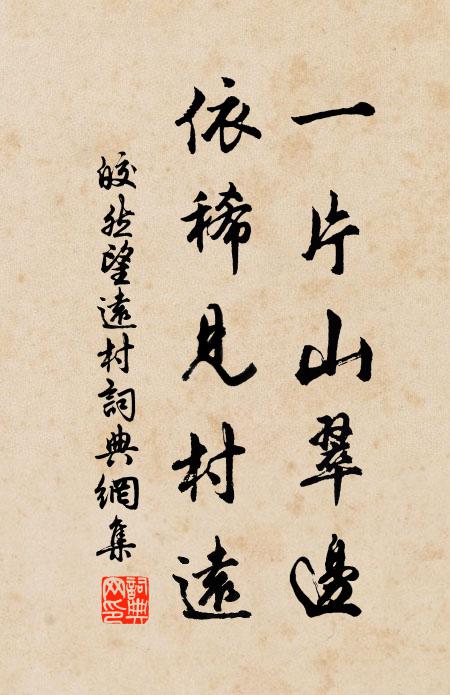 一片山翠邊
依稀見村遠
皎然望遠村詞典網集
詞典網印